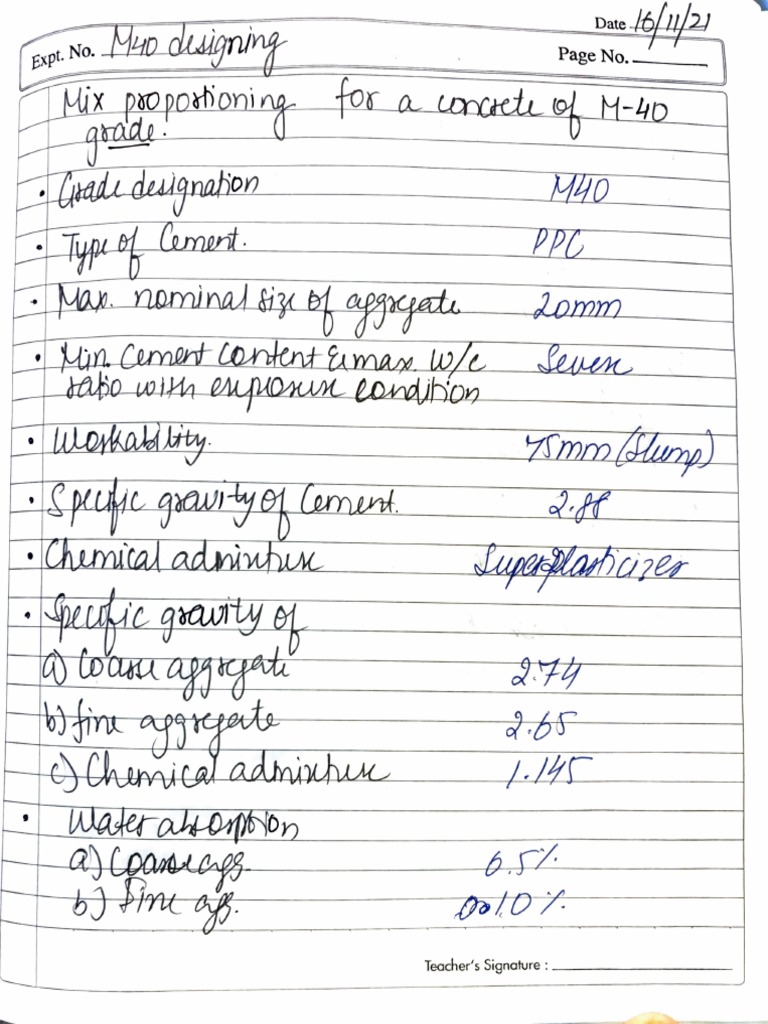 Date 16/11/21
Expt. No. M40 designing
Page No.
Mix proportioning for a concrete of M-40
grade.
• Grade designation M40
• Type of Cement. PPC
• Max. nominal size of aggregate 20mm
• Min. Cement Content & max. w/c Severe
ratio with exposure condition
• Workability. 75mm (Slump)
• Specific gravity of Cement. 2.88
• Chemical admixture Superplasticizer
• Specific gravity of
a) Coarse aggregate 2.74
b) fine aggregate 2.65
c) Chemical admixture 1.145
• Water absorption
a) Coarse agg. 0.5%
b) Fine agg. 1.0%
Teacher's Signature :